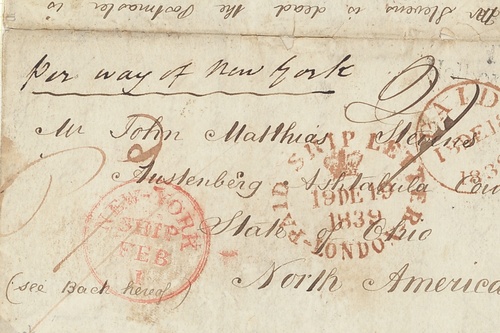 Mr Stevens is dead the Postmaster is
Per way of New York
Mr John Matthias Stevens
Austenberg Ashtabula Coun
State of Ohio
North America
(see Back hereof)
PAID SHIP LETTER
19 DE 19
1839
LONDON
PAID
13 DE 1
183
NEW-YORK
SHIP
FEB
1